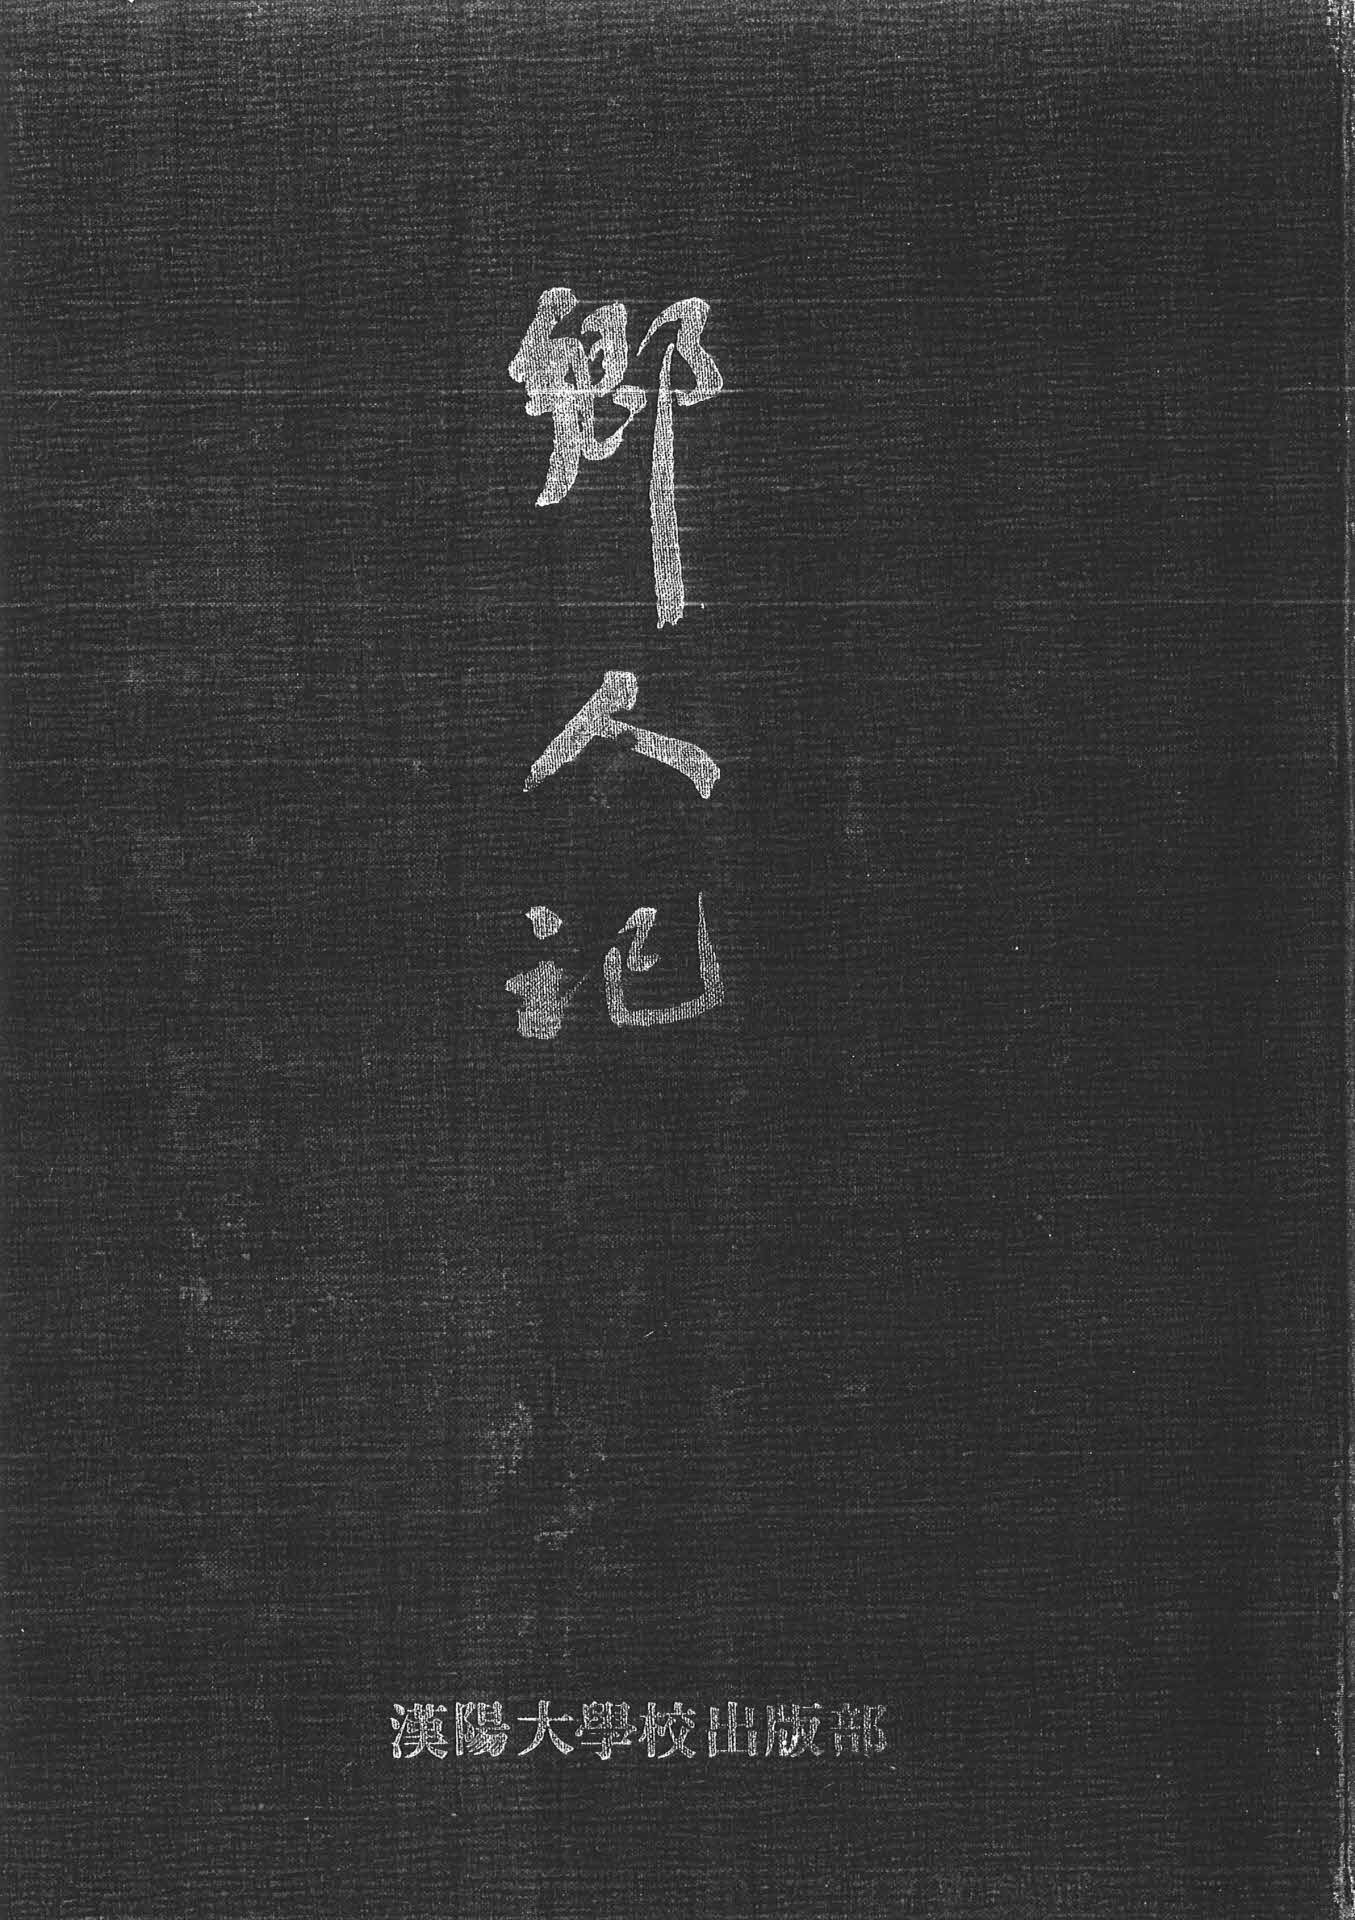 鄕人記
漢陽大學校出版部